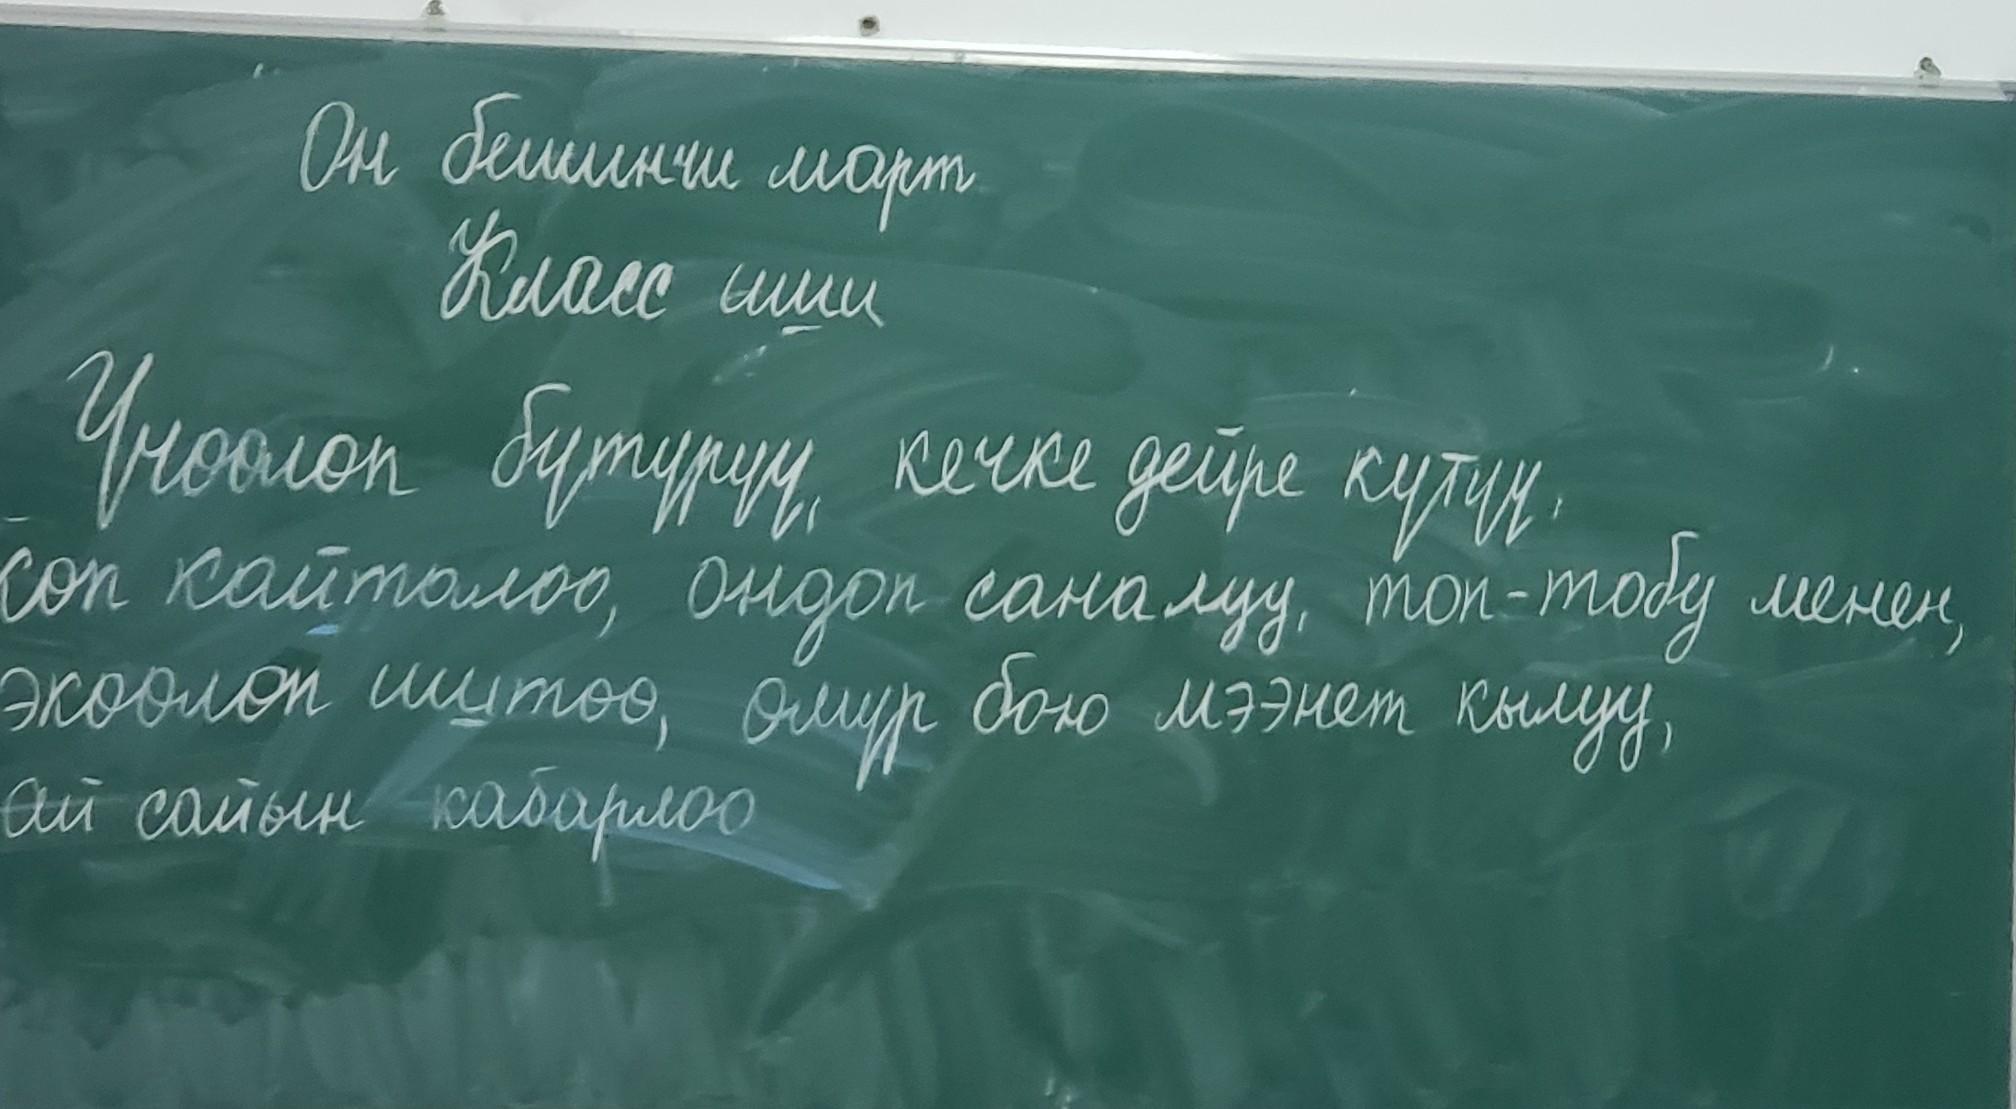 Он бешинчи март
Класс иши
Үчөөлөп бүтүрүү, кечке дейре күтүү,
көп кайталоо, ондоп саналуу, топ-тобу менен,
экөөлөп иштөө, өмүр бою мээнет кылуу,
ай сайын кабарлоо